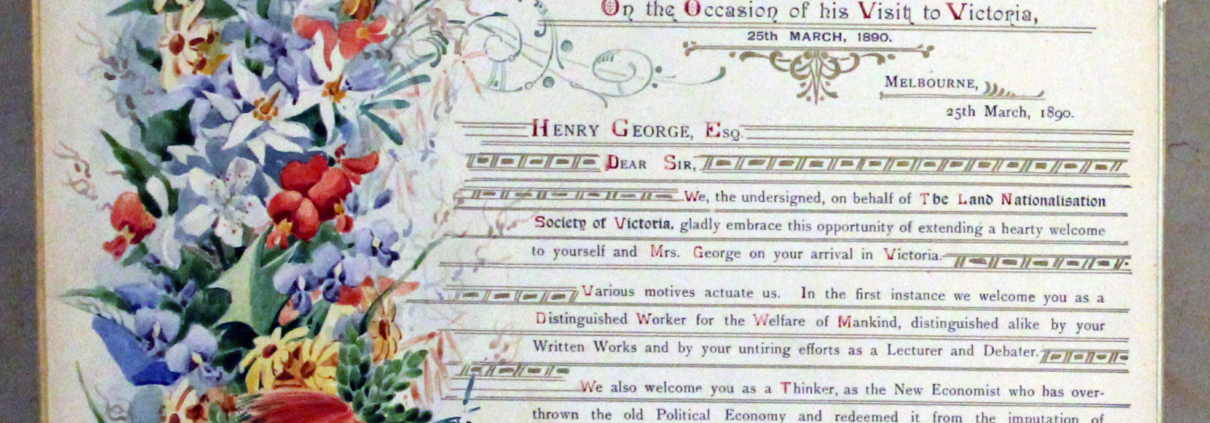 On the Occasion of his Visit to Victoria,
25th MARCH, 1890.
MELBOURNE,
25th March, 1890.
HENRY GEORGE, ESQ.
DEAR SIR,
We, the undersigned, on behalf of The Land Nationalisation
Society of Victoria, gladly embrace this opportunity of extending a hearty welcome
to yourself and Mrs. George on your arrival in Victoria.
Various motives actuate us. In the first instance we welcome you as a
Distinguished Worker for the Welfare of Mankind, distinguished alike by your
Written Works and by your untiring efforts as a Lecturer and Debater.
We also welcome you as a Thinker, as the New Economist who has over-
thrown the old Political Economy and redeemed it from the imputation of